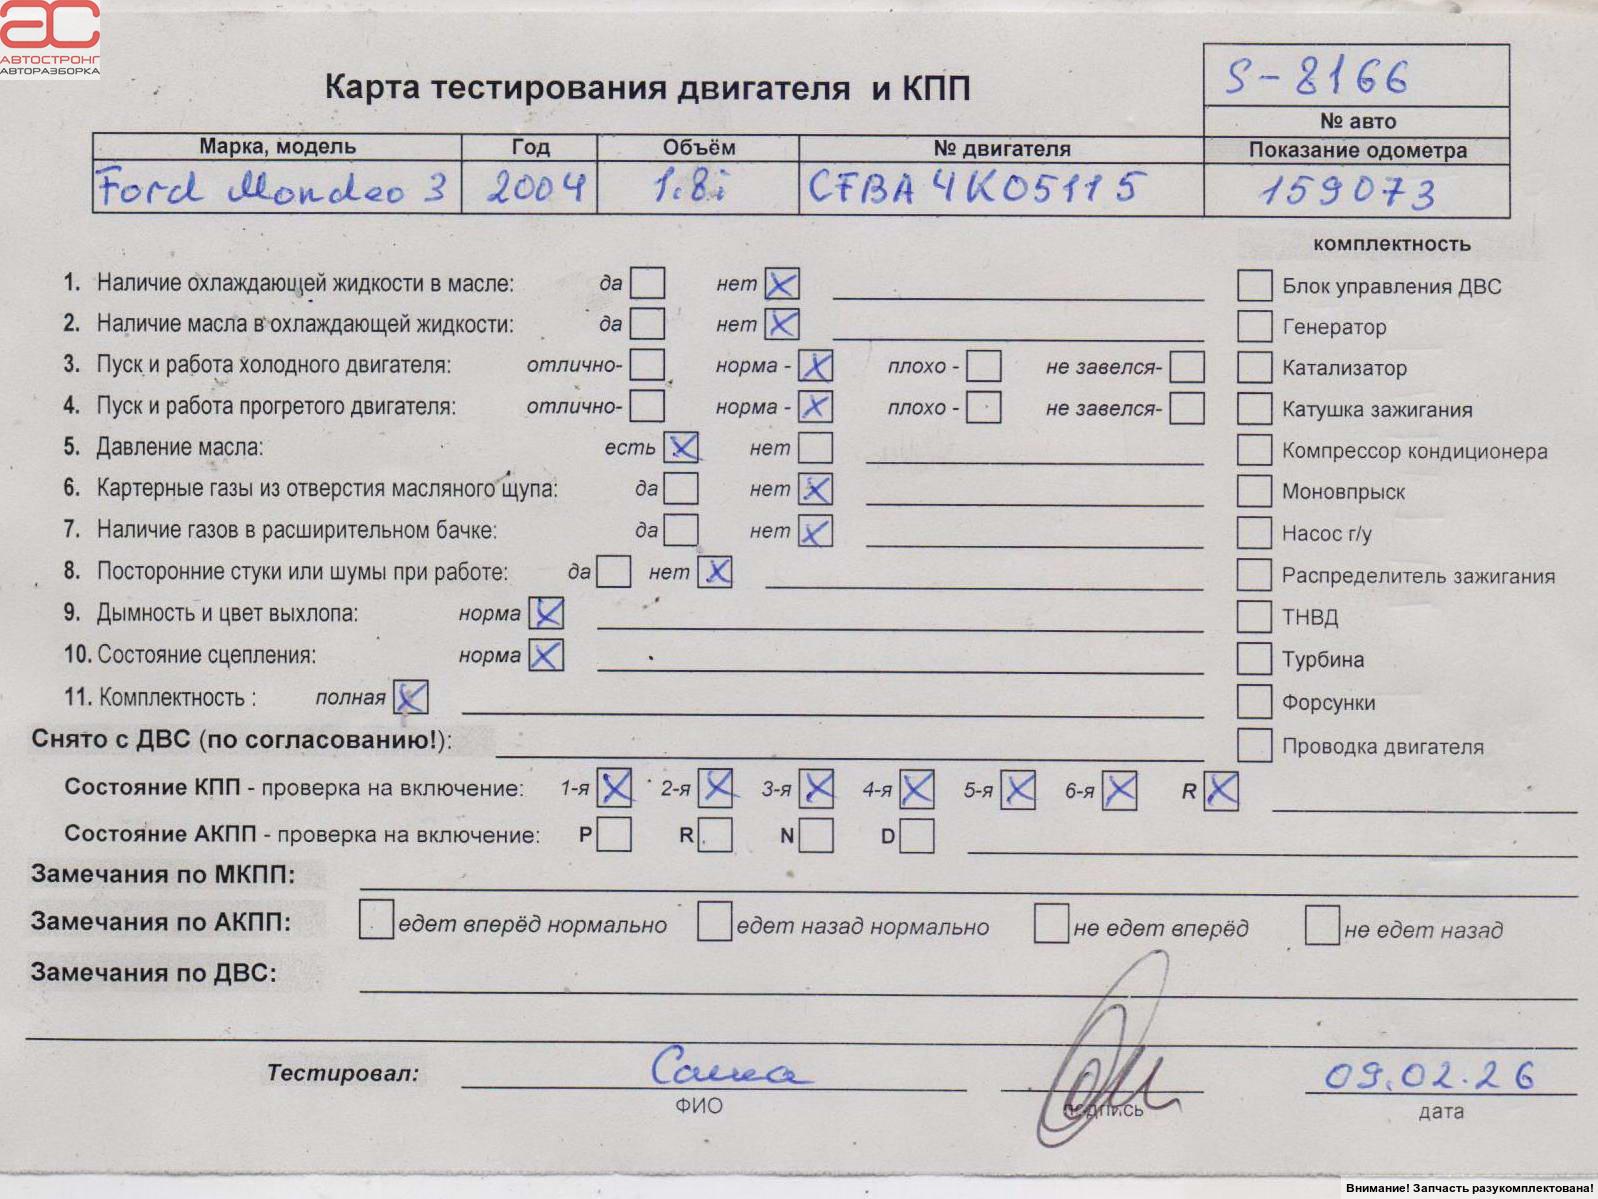 АС
АВТОСТРОНГ
АВТОРАЗБОРКА
Карта тестирования двигателя и КПП
S-8166
№ авто
Марка, модель Год Объём № двигателя Показание одометра
Ford Mondeo 3 2004 1.8i CFBA 4K05115 159073
комплектность
1. Наличие охлаждающей жидкости в масле: да нет Блок управления ДВС
2. Наличие масла в охлаждающей жидкости: да нет Генератор
3. Пуск и работа холодного двигателя: отлично- норма - плохо - не завелся- Катализатор
4. Пуск и работа прогретого двигателя: отлично- норма - плохо - не завелся- Катушка зажигания
5. Давление масла: есть нет Компрессор кондиционера
6. Картерные газы из отверстия масляного щупа: да нет Моновпрыск
7. Наличие газов в расширительном бачке: да нет Насос г/у
8. Посторонние стуки или шумы при работе: да нет Распределитель зажигания
9. Дымность и цвет выхлопа: норма ТНВД
10. Состояние сцепления: норма Турбина
11. Комплектность : полная Форсунки
Снято с ДВС (по согласованию!): Проводка двигателя
Состояние КПП - проверка на включение: 1-я 2-я 3-я 4-я 5-я 6-я R
Состояние АКПП - проверка на включение: P R N D
Замечания по МКПП:
Замечания по АКПП: едет вперёд нормально едет назад нормально не едет вперёд не едет назад
Замечания по ДВС:
Тестировал: Саша 09.02.26
ФИО подпись дата
Внимание! Запчасть разукомплектована!